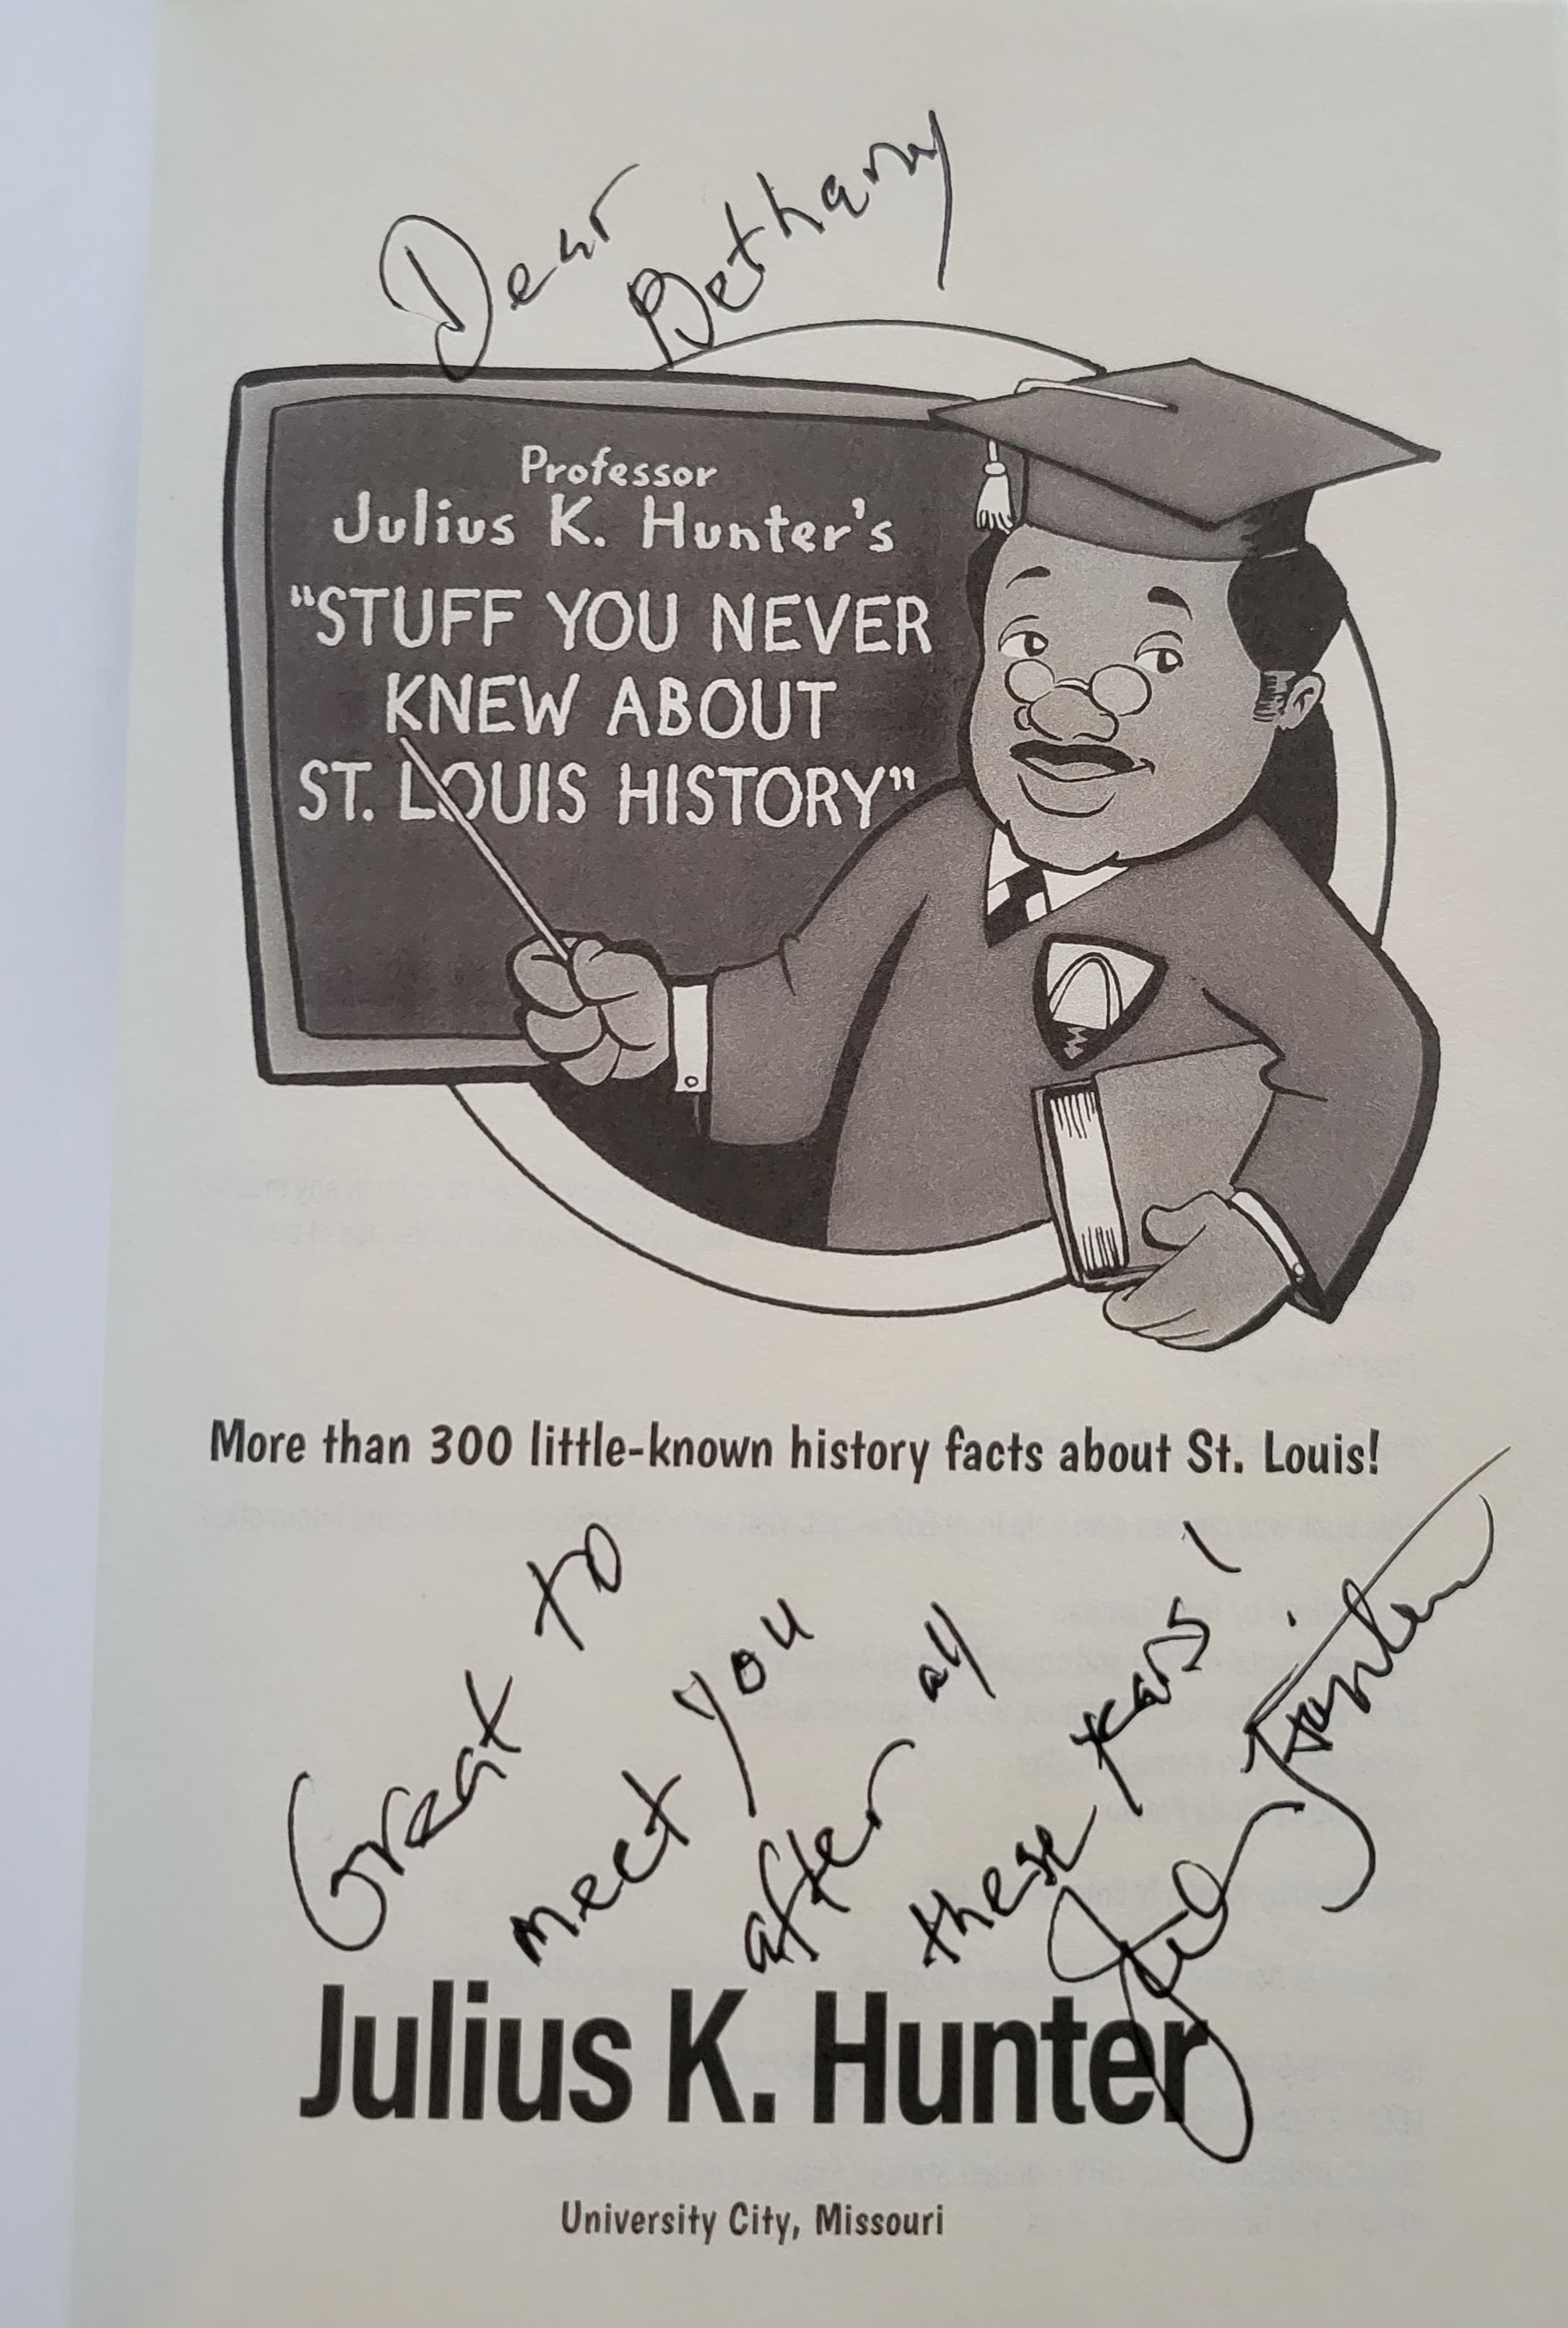 Dear
Bethany
Professor
Julius K. Hunter's
"STUFF YOU NEVER
KNEW ABOUT
ST. LOUIS HISTORY"
More than 300 little-known history facts about St. Louis!
Great to
meet you
after all
these years!
Julius Hunter
Julius K. Hunter
University City, Missouri